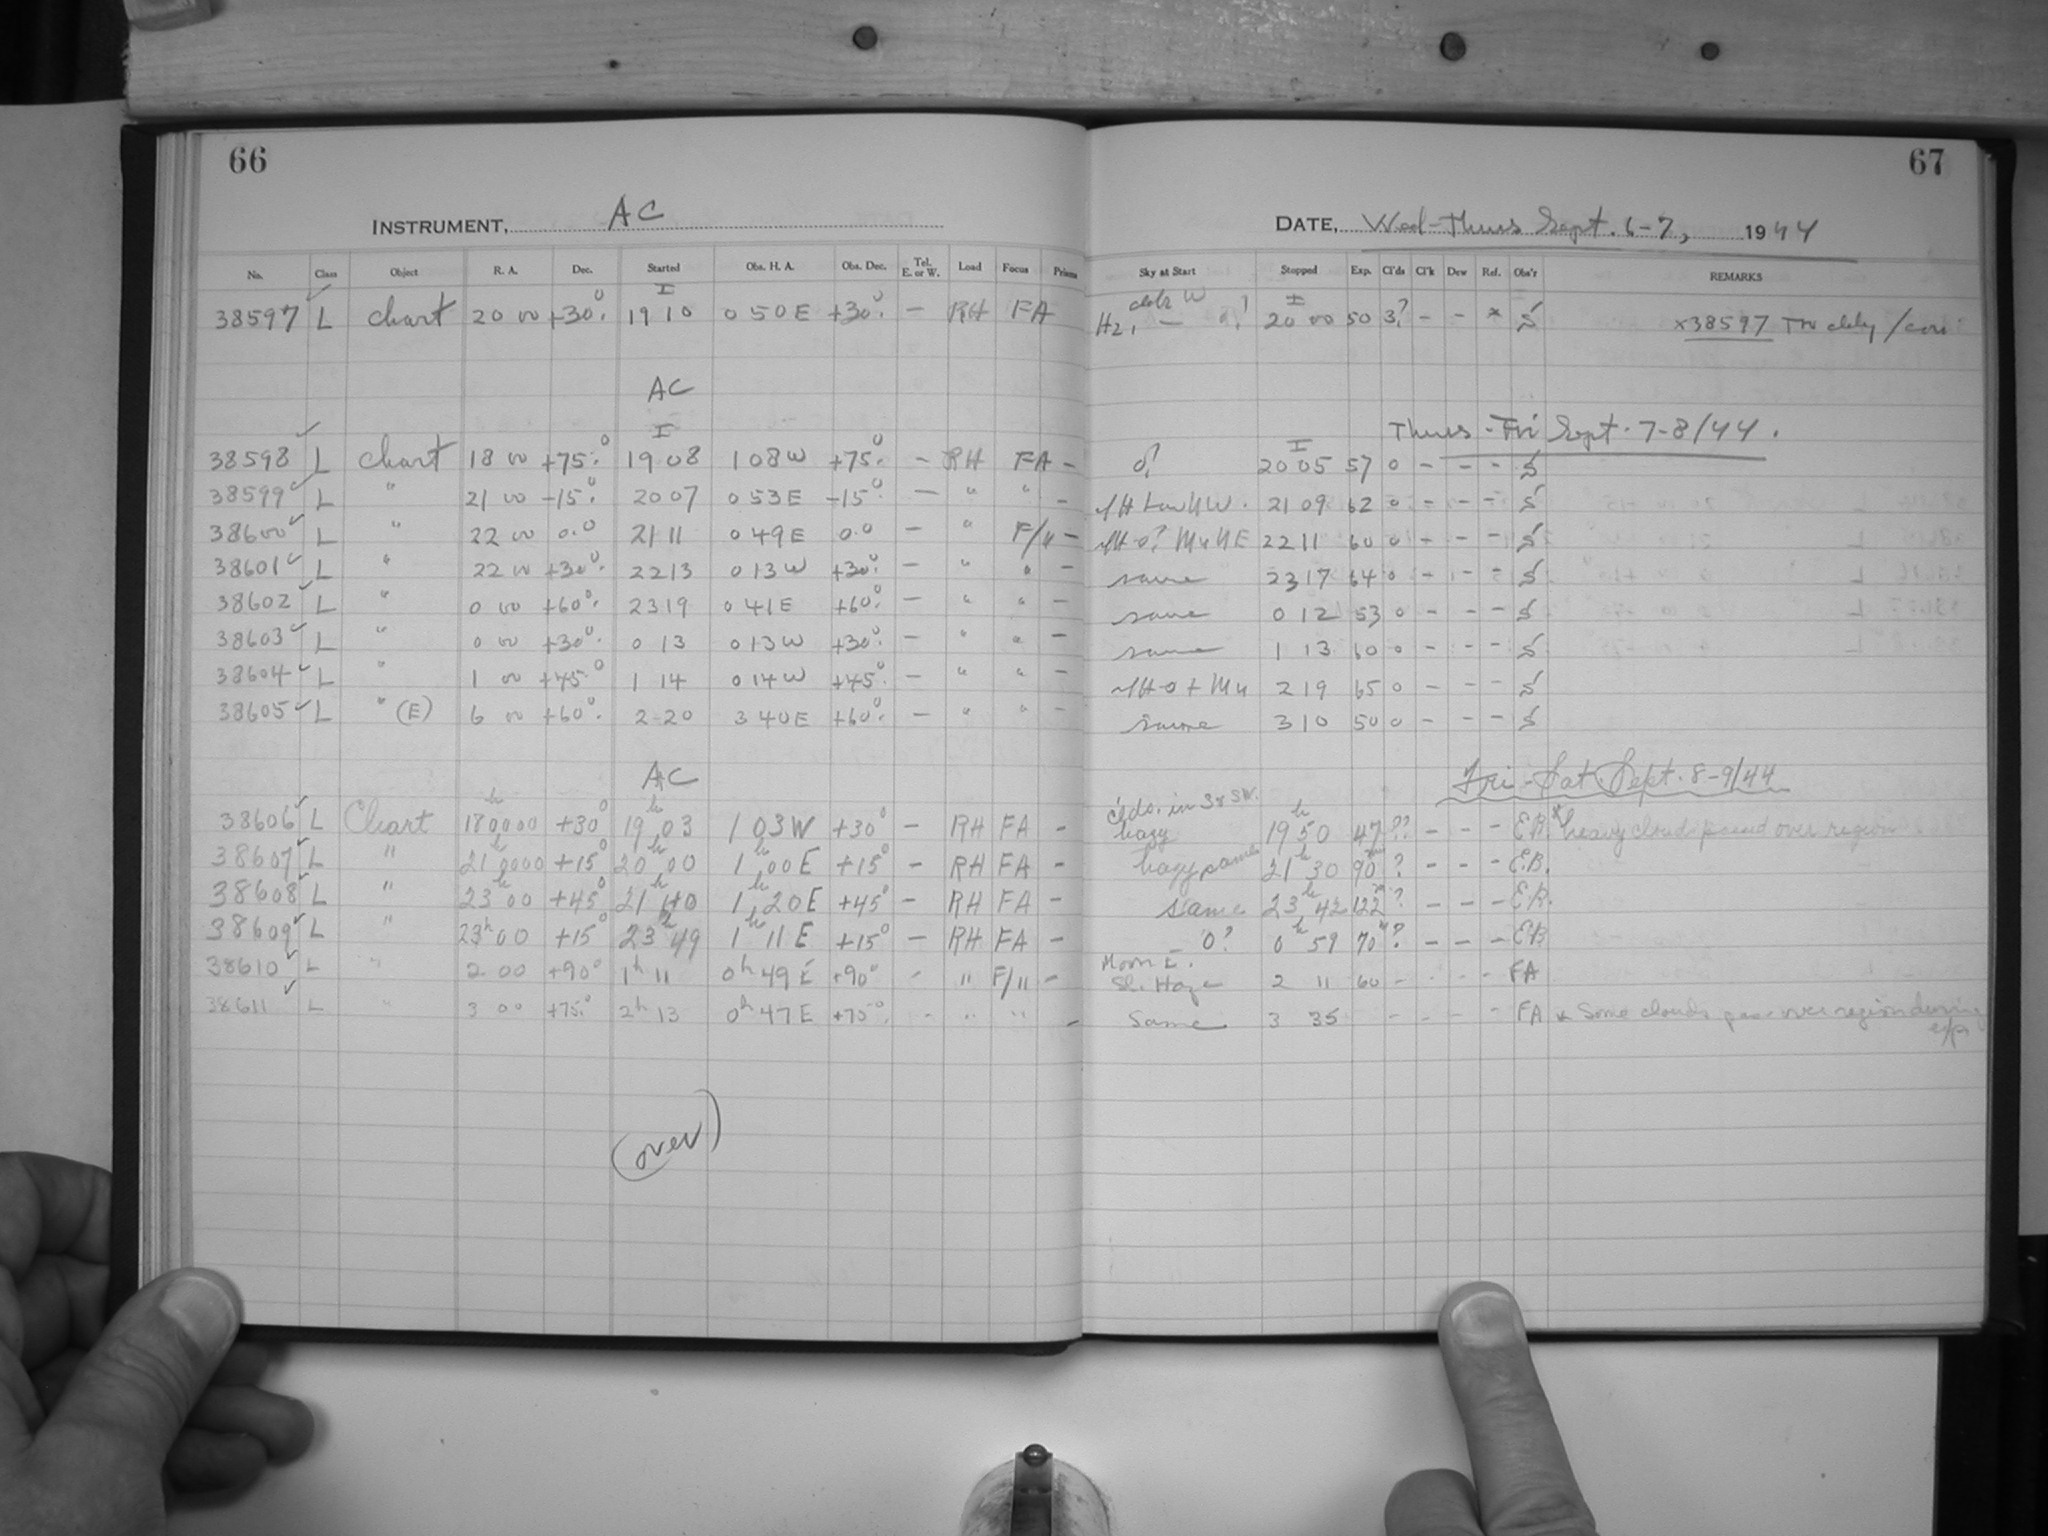 66
67
INSTRUMENT, AC
DATE, Wed-Thurs Sept. 6-7, 1944
No. Class Object R. A. Dec. Started Obs. H. A. Obs. Dec. Tel. E. or W. Load Focus Prisms Sky at Start Stopped Exp. Cl'ds Cl'k Dew Ref. Obs'r REMARKS
38597 ✓ L chart 20 00 +30°. I 19 10 0 50 E +30°. - RH FA I 20 00 50 3? - - * S x38597 Thr cldy / cons
AC
Thurs - Fri Sept. 7-8/44.
38598 ✓ L chart 18 00 +75°. I 19 08 1 08 W +75°. - RH FA - I 20 05 57 0 - - - S
38599 ✓ L " 21 00 -15°. 20 07 0 53 E -15°. - " " - 21 09 62 0 - - - S
38600 ✓ L " 22 00 0.0 21 11 0 49 E 0.0 - " F/11 - 22 11 60 0 - - - S
38601 ✓ L " 22 00 +30°. 22 13 0 13 W +30°. - " " - same 23 17 64 0 - - - S
38602 ✓ L " 0 00 +60°. 23 19 0 41 E +60°. - " " - same 0 12 53 0 - - - S
38603 ✓ L " 0 00 +30°. 0 13 0 13 W +30°. - " " - same 1 13 60 0 - - - S
38604 ✓ L " 1 00 +45°. 1 14 0 14 W +45°. - " " - 2 19 65 0 - - - S
38605 ✓ L " (E) 6 00 +60°. 2 20 3 40 E +60°. - " " - same 3 10 50 0 - - - S
AC
Fri - Sat. Sept. 8-9/44
38606 ✓ L Chart 18h 0000 +30° 19h 03 1 03 W +30° - RH FA - Clds. in S & SW. hazy 19h 50 47 ?? - - - E.B. *heavy clouds passed over region
38607 ✓ L " 21h 0000 +15° 20h 00 1h 00 E +15° - RH FA - hazy same 21h 30 90m ? - - - E.B.
38608 ✓ L " 23h 00 +45° 21h 40 1h 20 E +45° - RH FA - same 23h 42 122m ? - - - E.B.
38609 ✓ L " 23h 00 +15° 23h 49 1h 11 E +15° - RH FA - 0? 0h 59 70m ? - - - EB
38610 ✓ L " 2 00 +90° 1h 11 0h 49 E +90° - " F/11 - Moon E. Sl. Haze 2 11 60 - - FA
38611 ✓ L " 3 00 +75° 2h 13 0h 47 E +75° - " " - Same 3 35 - - - - FA * Some clouds pass over region during exp
(over)